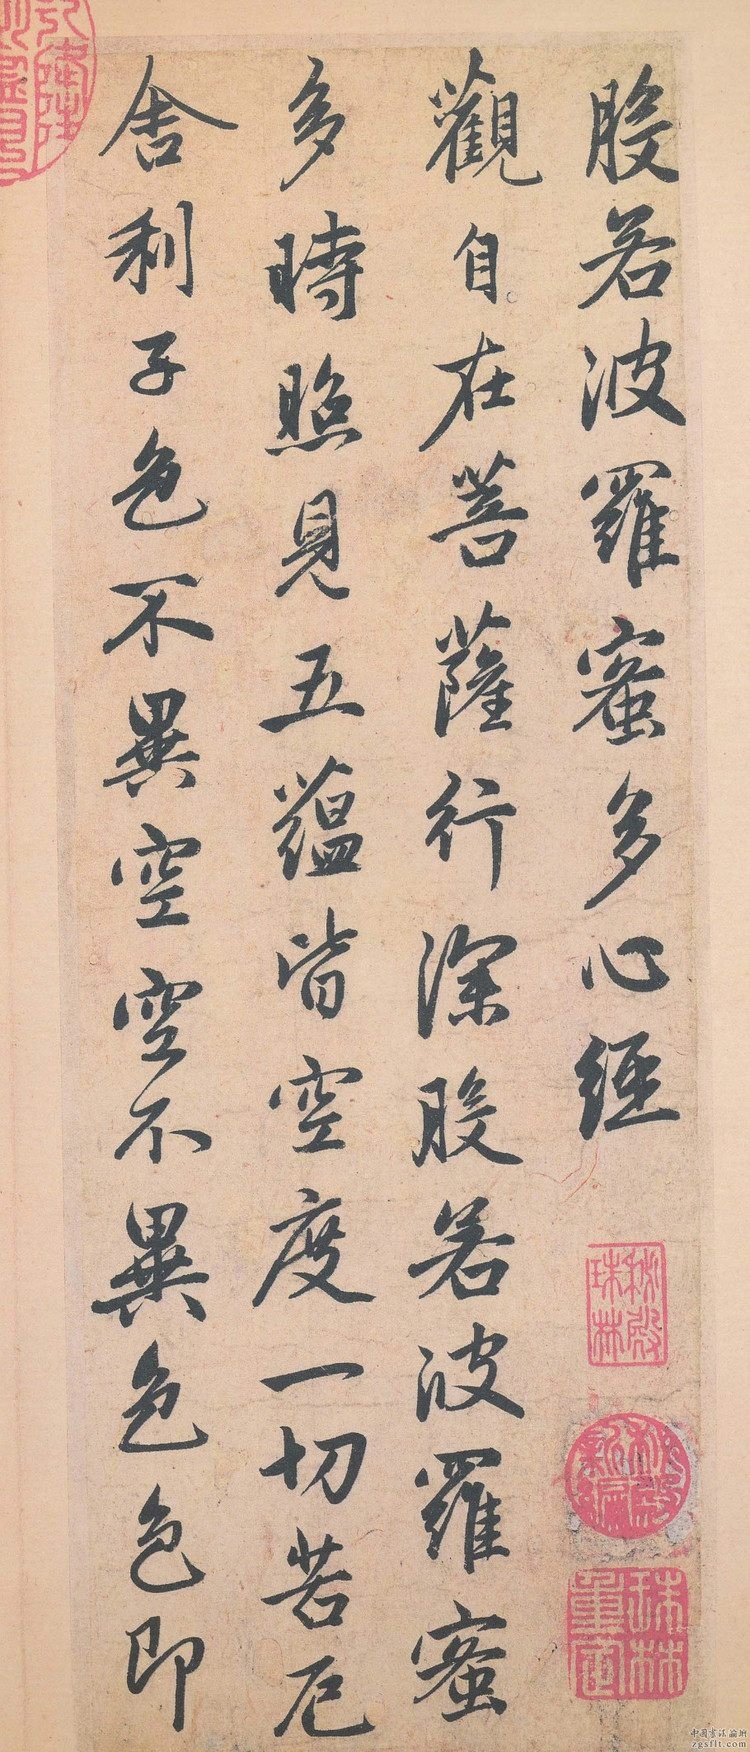 般若波羅蜜多心經
觀自在菩薩行深般若波羅蜜
多時照見五蘊皆空度一切苦厄
舍利子色不異空空不異色色即
秘殿珠林
秘殿新編
珠林重定
zgsflt.com